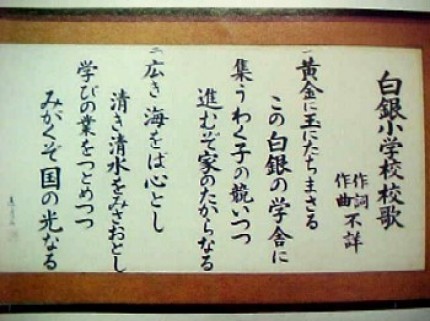 白銀小学校校歌
作詞
作曲 不詳
一 黄金に玉にたちまさる
この白銀の学舎に
集うわく子の競いつつ
進むぞ家のたからなる
二 広き海をば心とし
清き清水をみさおとし
学びの業をつとめつつ
みがくぞ国の光なる